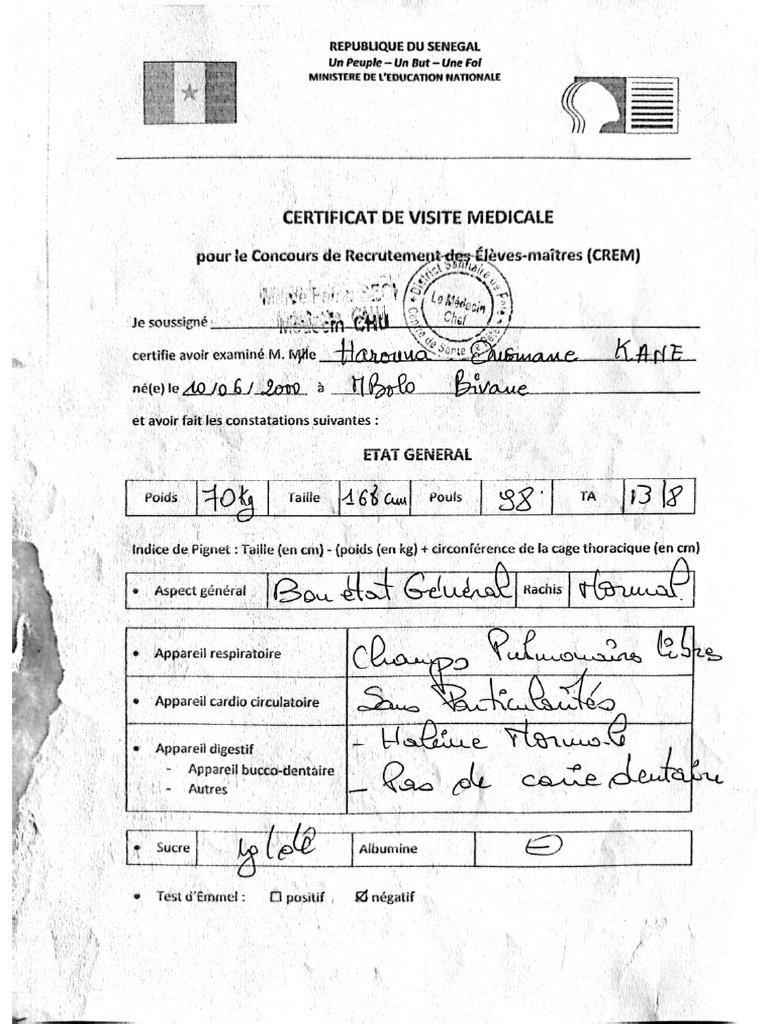 REPUBLIQUE DU SENEGAL
Un Peuple – Un But – Une Foi
MINISTERE DE L'EDUCATION NATIONALE
CERTIFICAT DE VISITE MEDICALE
pour le Concours de Recrutement des Élèves-maîtres (CREM)
District Sanitaire de
Le Médecin
Chef
Centre de Santé
Médecin CHU
Je soussigné
certifie avoir examiné M. Mlle Harouna Ousmane KANE
né(e) le 10/06/2000 à MBolo Birane
et avoir fait les constatations suivantes :
ETAT GENERAL
Poids 70kg Taille 168 cm Pouls 98 TA 13/8
Indice de Pignet : Taille (en cm) - (poids (en kg) + circonférence de la cage thoracique (en cm)
• Aspect général Bon état Général Rachis Normal.
• Appareil respiratoire Champs Pulmonaires libres
• Appareil cardio circulatoire Sans Particularités
• Appareil digestif - Haleine Normale
- Appareil bucco-dentaire - Pas de carie dentaire
- Autres
• Sucre 1g/dl Albumine
• Test d'Emmel : ☐ positif ☑ négatif